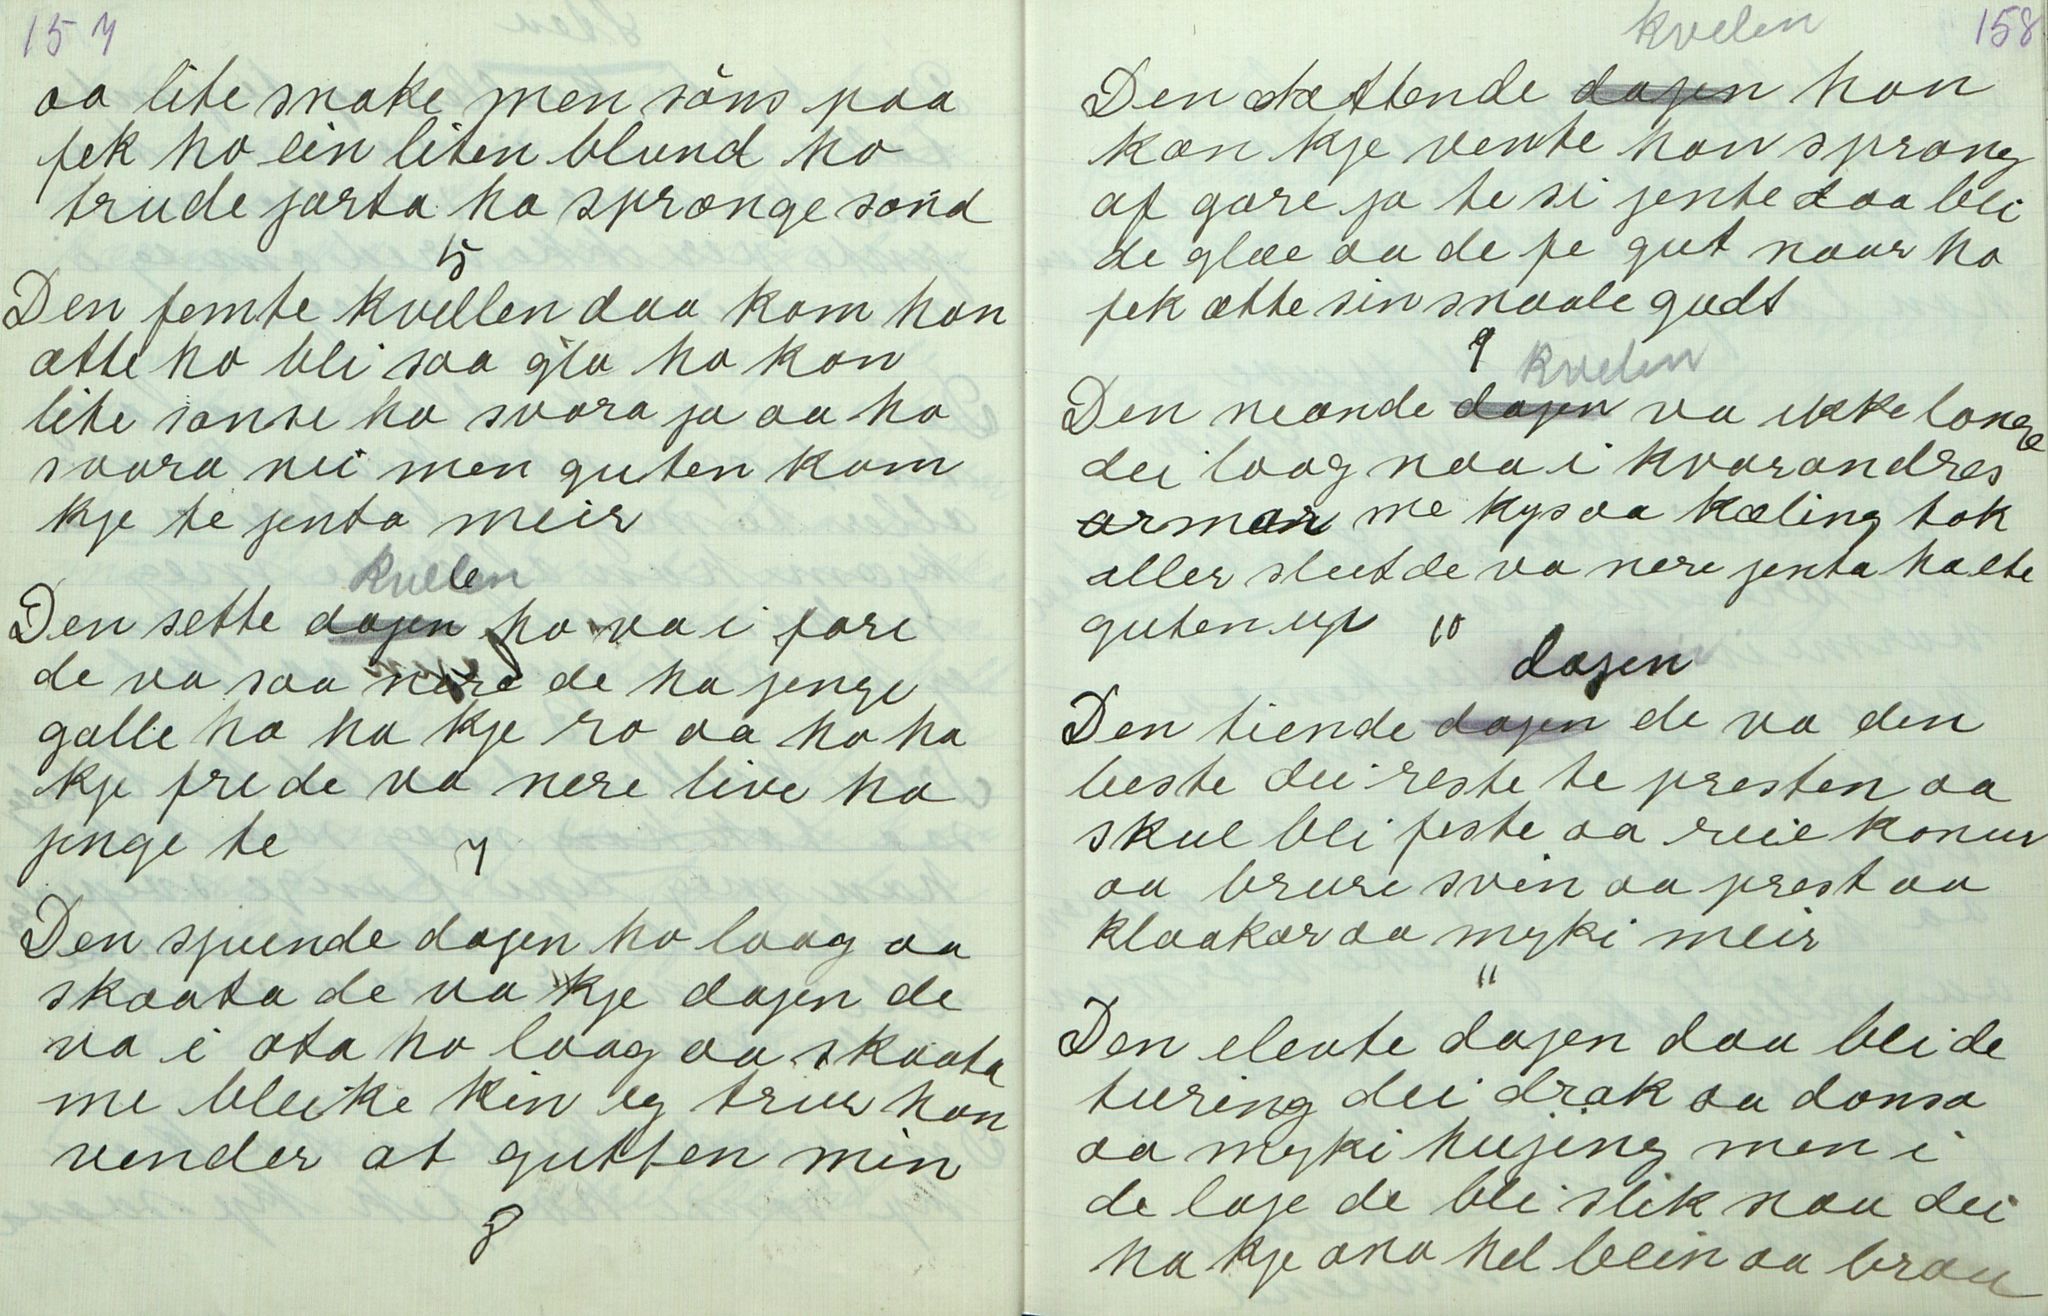 157
aa lite snake men såns paa
fek ho ein liten blund ho
trude jarta ha sprænge sønd
5
Den femte kvellen daa kom han
ætte ho bli saa gla ho kan
lite sanse ho svara ja aa ho
svara nei men guten kom
kje te jenta meir
kvelen
Den sette dajen ho va i fare
de va saa nere de ha jenge
galle ho ha kje ro aa ho ha
kje fre de va nere live ha
jenge te
7
Den sjuende dajen ho laag aa
skaata de va kje dajen de
va i ota ho laag aa skaata
me bleike kin eg trur han
vender at gutten min
8
kvelen
158
Den aattende dajen han
kan kje vente han sprang
af gare ja te si jente daa bli
de glæ aa de fe gut naar ho
fek ætte sin snaale gudt
9
kvelen
Den neande dajen va ikke lange
dei laag naa i kvarandres
armar me kys aa kæling tok
aller slut de va nere jenta haldte
guten up
10
dajen
Den tiende dajen de va den
beste dei reste te presten aa
skul bli feste aa reie konur
aa brure svin aa prest aa
klaakar aa myki meir
11
Den elevte dajen daa bli de
turing dei drak aa dansa
aa myki hujing men i
de laje de bli slik naa dei
ha kje ana hel bein aa brau